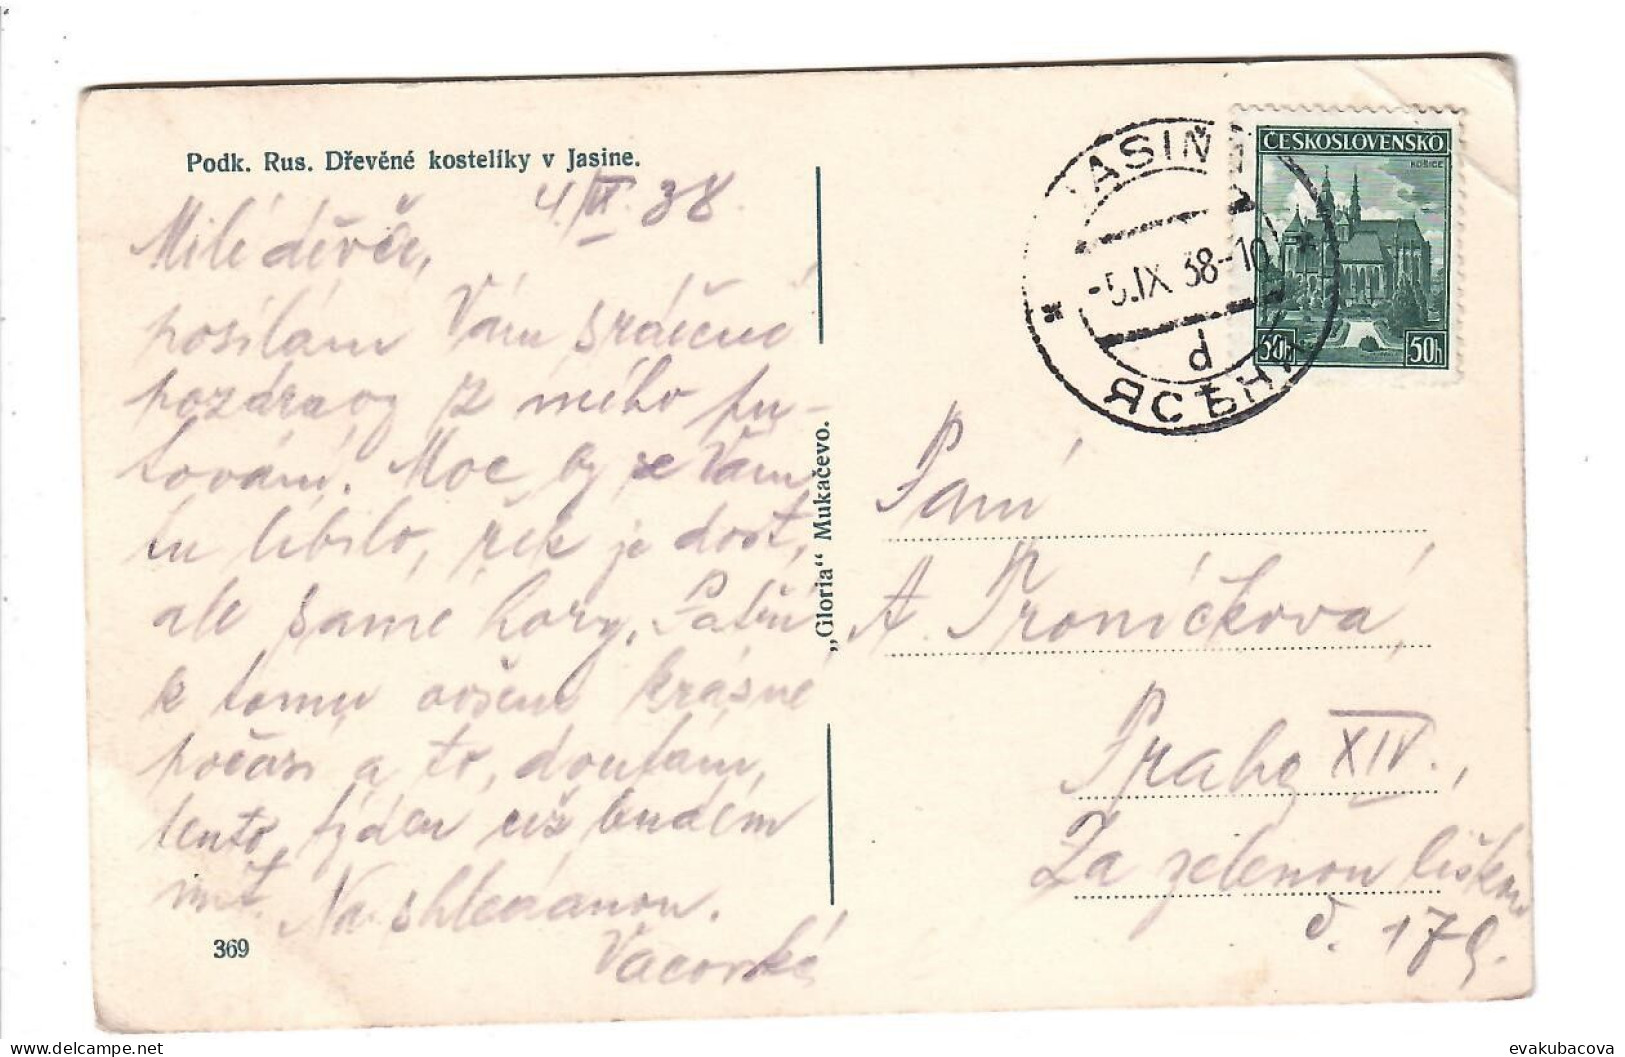 Podk. Rus. Dřevěné kostelíky v Jasine.
4/IX. 38.
Milé děvče,
posílám Vám srdečné
pozdravy z mého pu-
tování. Moc by se Vám
tu líbilo, řek je dost,
ale samé hory. Patří
k tomu ovšem krásné
počasí a to, doufám,
tento týden už budem
mít. Na shledanou.
369
„Gloria“ Mukačevo.
JASIŇA
-5.IX 38-10
d
ЯСѢНЯ
ČESKOSLOVENSKO
KOŠICE
50h 50h
Paní
A. Proníčková,
Praha XIV.,
Za zelenou liškou
č. 179.
delcampe.net
evakubacova